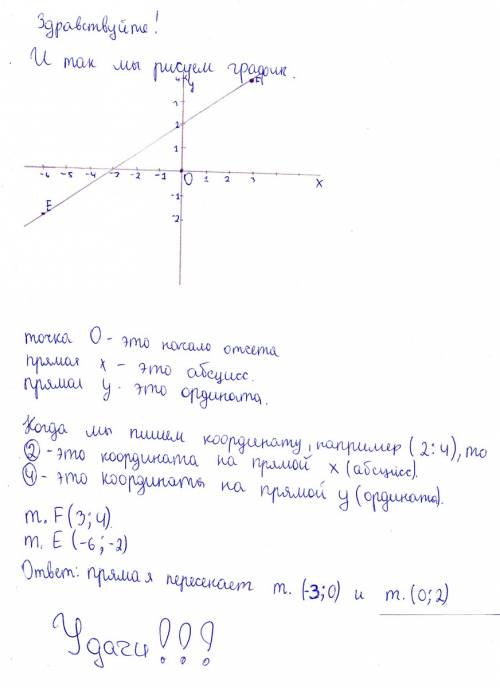 Здравствуйте!
И так мы рисуем график.
4 y F
3
2
1
-6 -5 -4 -3 -2 -1 O 1 2 3 x
-1
E
-2
точка O - это начало отсчета
прямая x - это абсцисс.
прямая y - это ордината.
Когда мы пишем координату, например (2:4), то
2 - это координата на прямой x (абсцисс).
4 - это координаты на прямой y (ордината).
т. F (3; 4).
т. E (-6; -2)
Ответ: прямая пересекает т. (-3; 0) и т. (0; 2)
Удачи!!!